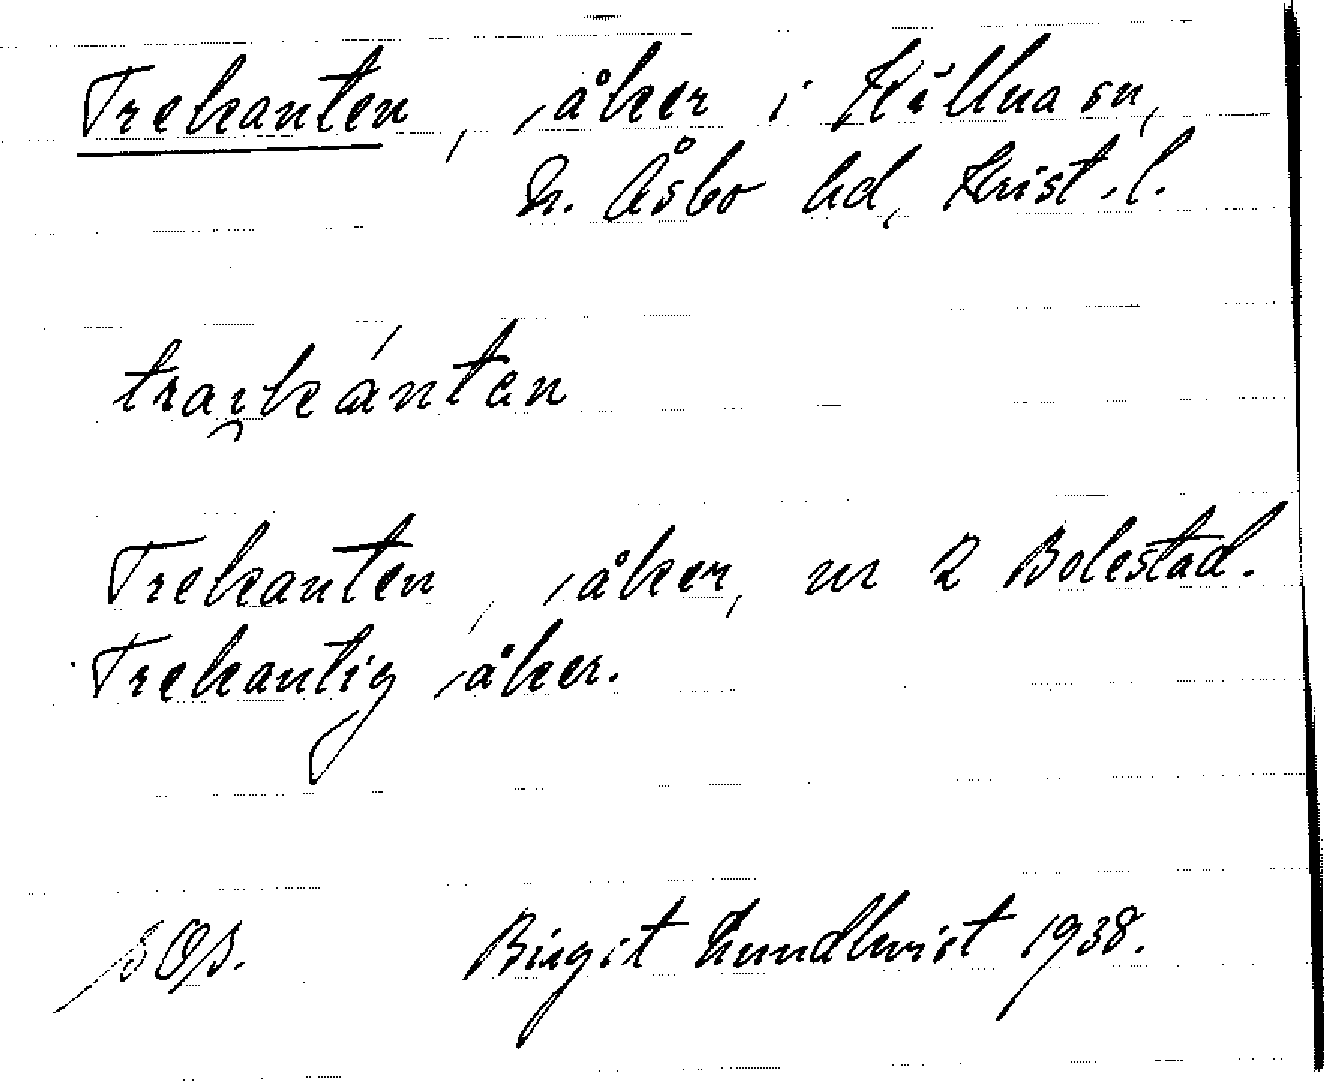 Trekanten, åker i Källna sn,
N. Åsbo hd, Krist. l.
trai̯kántan
Trekanten, åker, nr 2 Bolestad.
Trekantig åker.
SOS. Birgit Lundkvist 1938.